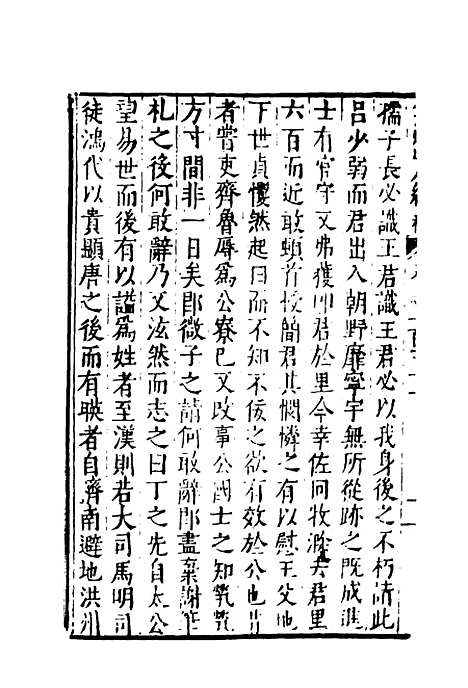 孺子長必識王君識王君必以我身後之不朽請此
呂少弱而君出入朝野靡寧宇無所從跡之既成進
士有官守又弗獲叩君於里今幸佐冏牧滁去君里
六百而近敢頓首授簡君其憫憐之有以慰王父地
下世貞戄然起曰而不知不佞之欲有效於公也昔
者嘗吏齊魯辱為公寮已又改事公國士之知煢煢
方寸間非一日矣即微子之請何敢辭即盡棄謝筆
札之後何敢辭乃又泫然而志之曰丁之先自太公
望易世而後有以謚為姓者至漢則若大司馬明司
徒鴻代以貴顯唐之後而有映者自齊南避地洪州